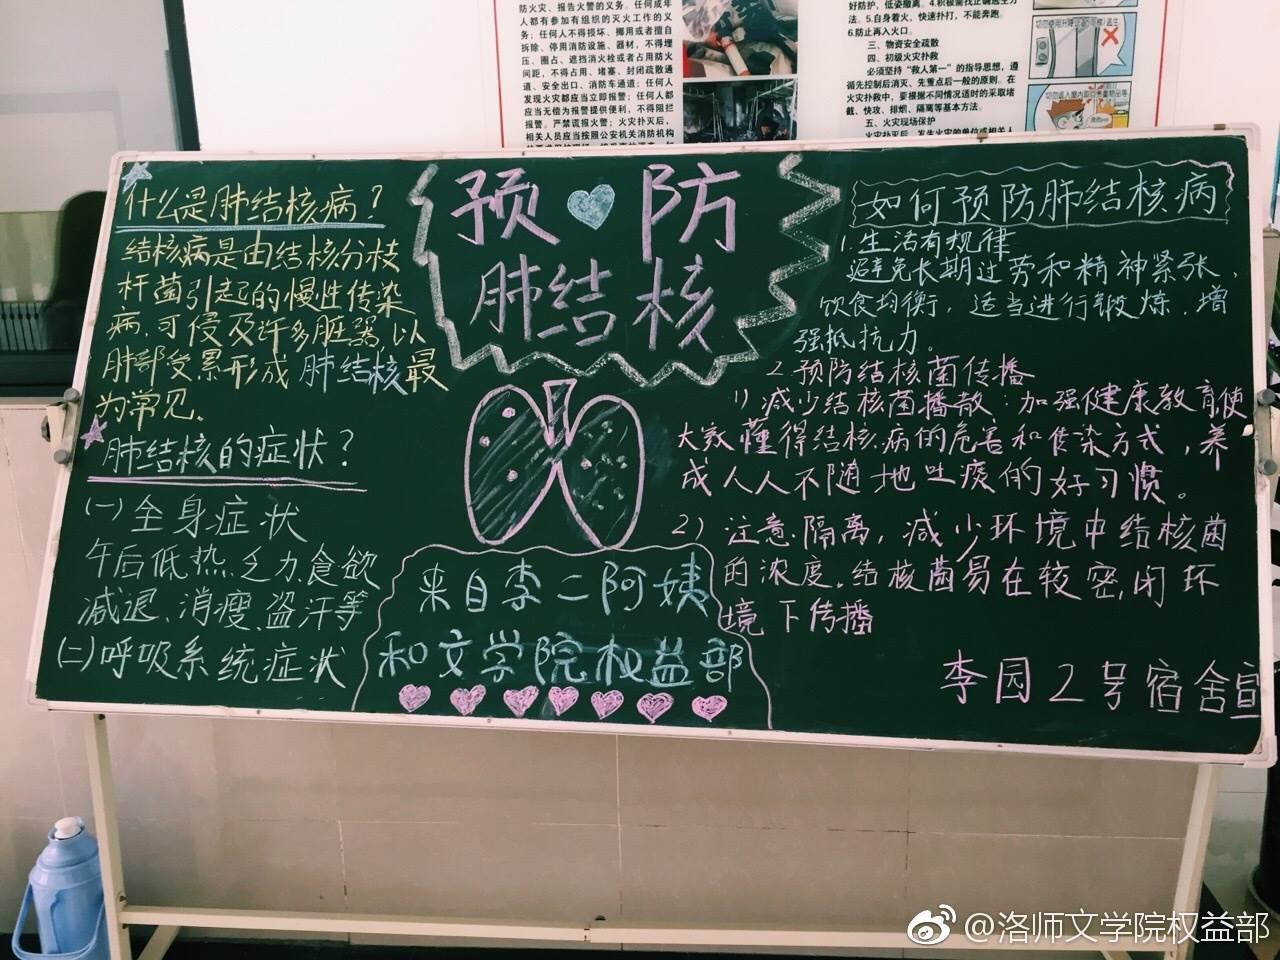 防火灾、报告火警的义务。任何成年
人都有参加有组织的灭火工作的义
务；任何人不得损坏、挪用或者擅自
拆除、停用消防设施、器材，不得埋
压、圈占、遮挡消火栓或者占用防火
间距，不得占用、堵塞、封闭疏散通
道、安全出口、消防车通道；任何人
发现火灾都应当立即报警；任何人都
应当无偿为报警提供便利，不得阻拦
报警。严禁谎报火警；火灾扑灭后，
相关人员应当按照公安机关消防机构
好防护，低姿撤离。
法。5.自身着火，快速扑打，不能奔跑。
6.防止再入火口。
三、物资安全疏散
四、初级火灾扑救
必须坚持“救人第一”的指导思想，遵
循先控制后消灭、先重点后一般的原则。在
火灾扑救中，要根据不同情况适时的采取堵
截、快攻、排烟、隔离等基本方法。
五、火灾现场保护
什么是肺结核病？
结核病是由结核分枝
杆菌引起的慢性传染
病、可侵及许多脏器，以
肺部受累形成肺结核最
为常见.
肺结核的症状？
(一)全身症状
午后低热、乏力、食欲
减退、消瘦、盗汗等
(二)呼吸系统症状
预防
肺结核
来自李二阿姨
和文学院权益部
如何预防肺结核病
1.生活有规律
避免长期过劳和精神紧张、
饮食均衡，适当进行锻炼、增
强抵抗力。
2.预防结核菌传播
1)减少结核菌播散：加强健康教育使
大家懂得结核病的危害和传染方式，养
成人人不随地吐痰的好习惯。
2)注意隔离，减少环境中结核菌
的浓度。结核菌易在较密闭环
境下传播
李园2号宿舍宣
@洛师文学院权益部